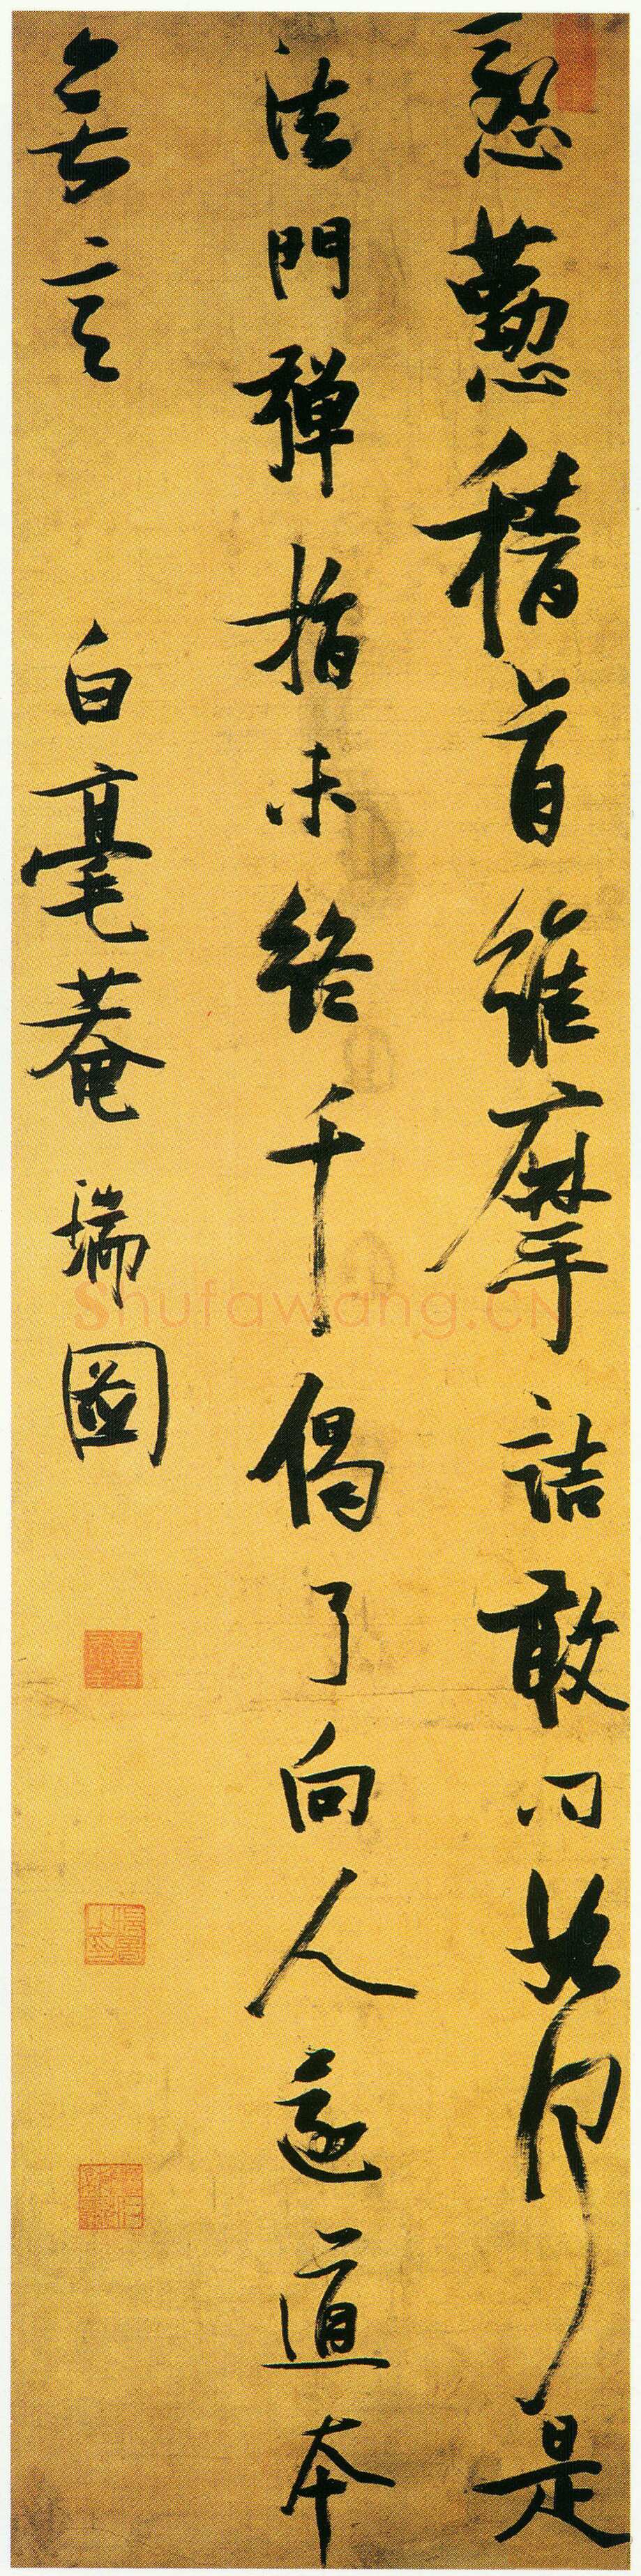 慇懃稽首維摩詰敢問如何是
法門彈指未終千偈了向人還道本
無言
白毫菴瑞圖
Shufawang.CN